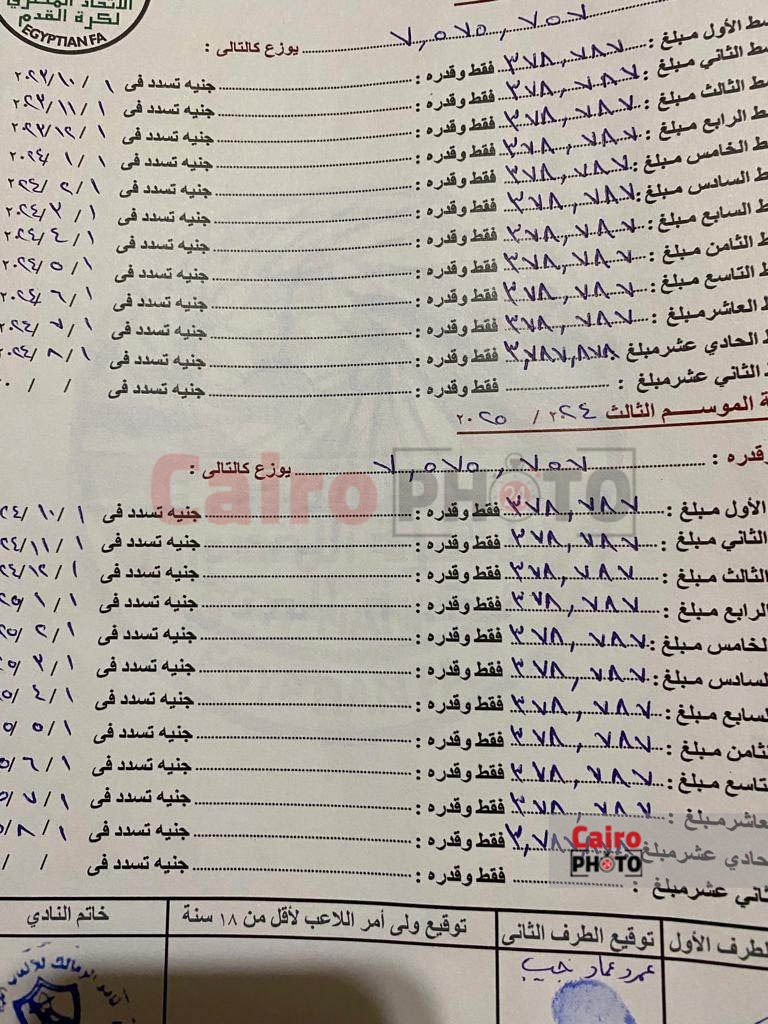 الاتحاد المصري
لكرة القدم
EGYPTIAN FA
٧,٥٧٥,٧٥٧ يوزع كالتالى :
ط الأول مبلغ : ٣٧٨,٧٨٧ فقط وقدره : جنيه تسدد فى ١ / ١٠ / ٢٠٢٣
ط الثاني مبلغ : ٣٧٨,٧٨٧ فقط وقدره : جنيه تسدد فى ١ / ١١ / ٢٠٢٣
ط الثالث مبلغ : ٣٧٨,٧٨٧ فقط وقدره : جنيه تسدد فى ١ / ١٢ / ٢٠٢٣
ط الرابع مبلغ : ٣٧٨,٧٨٧ فقط وقدره : جنيه تسدد فى ١ / ١ / ٢٠٢٤
ط الخامس مبلغ : ٣٧٨,٧٨٧ فقط وقدره : جنيه تسدد فى ١ / ٢ / ٢٠٢٤
ط السادس مبلغ : ٣٧٨,٧٨٧ فقط وقدره : جنيه تسدد فى ١ / ٣ / ٢٠٢٤
ط السابع مبلغ : ٣٧٨,٧٨٧ فقط وقدره : جنيه تسدد فى ١ / ٤ / ٢٠٢٤
ط الثامن مبلغ : ٣٧٨,٧٨٧ فقط وقدره : جنيه تسدد فى ١ / ٥ / ٢٠٢٤
ط التاسع مبلغ : ٣٧٨,٧٨٧ فقط وقدره : جنيه تسدد فى ١ / ٦ / ٢٠٢٤
ط العاشر مبلغ : ٣٧٨,٧٨٧ فقط وقدره : جنيه تسدد فى ١ / ٧ / ٢٠٢٤
ط الحادي عشر مبلغ ٣,٧٨٧,٨٧٨ فقط وقدره : جنيه تسدد فى ١ / ٨ / ٢٠٢٤
ط الثاني عشر مبلغ : فقط وقدره : جنيه تسدد فى / /
ة الموسم الثالث ٢٠٢٤ / ٢٠٢٥
وقدره : ٧,٥٧٥,٧٥٧ يوزع كالتالى :
Cairo 24 PHOTO
الأول مبلغ : ٣٧٨,٧٨٧ فقط وقدره : جنيه تسدد فى ١ / ١٠ / ٢٤
الثاني مبلغ : ٣٧٨,٧٨٧ فقط وقدره : جنيه تسدد فى ١ / ١١ / ٢٤
الثالث مبلغ : ٣٧٨,٧٨٧ فقط وقدره : جنيه تسدد فى ١ / ١٢ / ٢٤
الرابع مبلغ : ٣٧٨,٧٨٧ فقط وقدره : جنيه تسدد فى ١ / ١ / ٢٥
لخامس مبلغ : ٣٧٨,٧٨٧ فقط وقدره : جنيه تسدد فى ١ / ٢ / ٢٥
لسادس مبلغ : ٣٧٨,٧٨٧ فقط وقدره : جنيه تسدد فى ١ / ٣ / ٢٥
لسابع مبلغ : ٣٧٨,٧٨٧ فقط وقدره : جنيه تسدد فى ١ / ٤ / ٢٥
لثامن مبلغ : ٣٧٨,٧٨٧ فقط وقدره : جنيه تسدد فى ١ / ٥ / ٥
تاسع مبلغ : ٣٧٨,٧٨٧ فقط وقدره : جنيه تسدد فى ١ / ٦ / ٥
عاشر مبلغ : ٣٧٨,٧٨٧ فقط وقدره : جنيه تسدد فى ١ / ٧ / ٥
حادي عشر مبلغ فقط وقدره : جنيه تسدد فى ١ / ٨ / ٥
ثاني عشر مبلغ : فقط وقدره : جنيه تسدد فى / /
Cairo PHOTO
لطرف الأول توقيع الطرف الثانى توقيع ولى أمر اللاعب لأقل من ١٨ سنة خاتم النادي
عمرو عماد نجيب